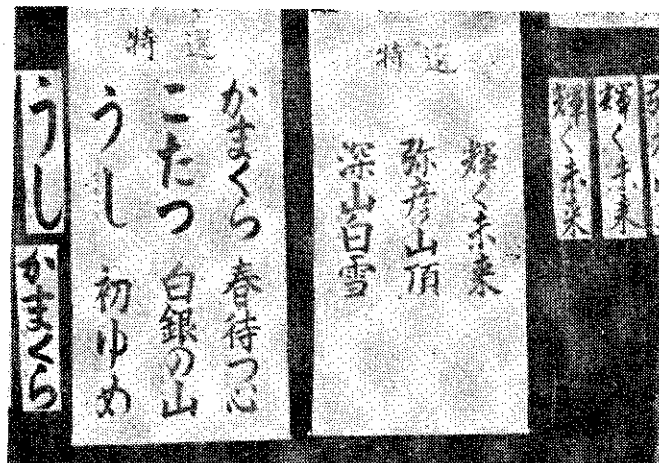 輝く未来
輝く未来
特選
輝く未来
弥彦山頂
深山白雪
特選
かまくら 春待つ心
こたつ 白銀の山
うし 初ゆめ
うし
かまくら